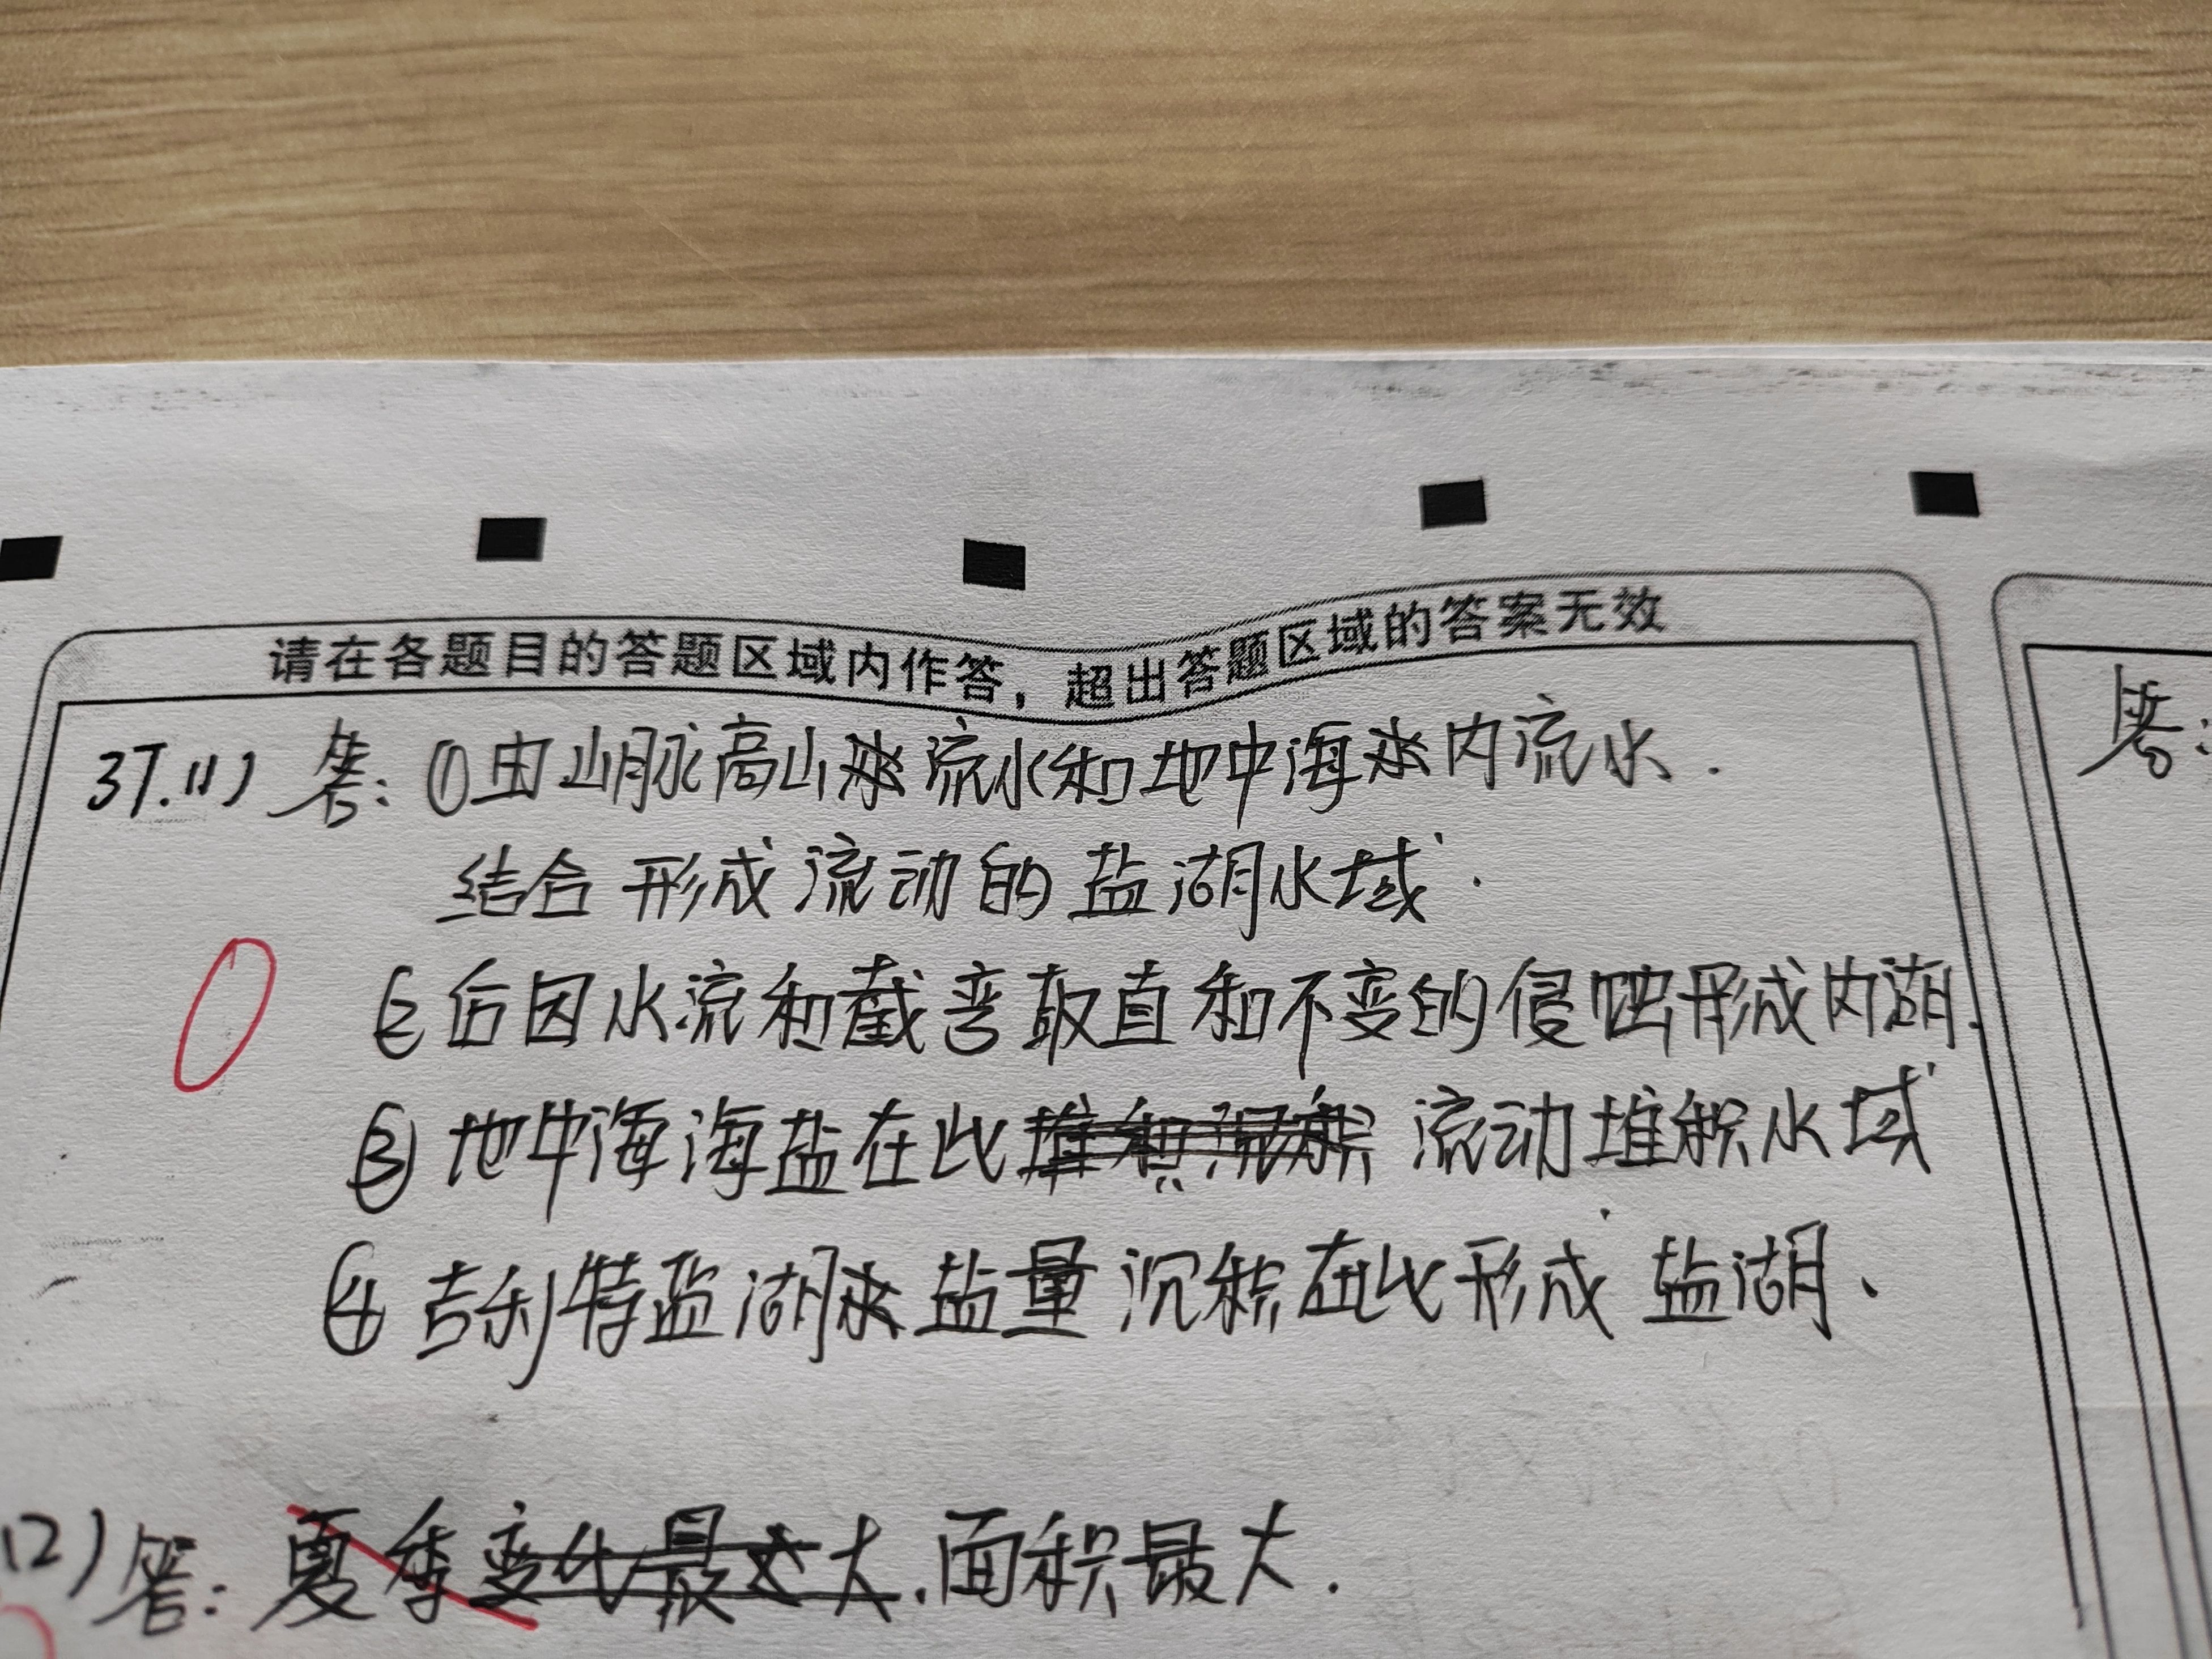 请在各题目的答题区域内作答，超出答题区域的答案无效
37.(1) 答：①由山脉高山水流水和地中海水内流水.
结合形成流动的盐湖水域.
②后因水流和截弯取直和不变的侵蚀形成内湖.
③地中海海盐在此流动堆积水域
④吉利特盐湖水盐量沉积在此形成盐湖、
(2) 答：夏季大.面积最大.
答：